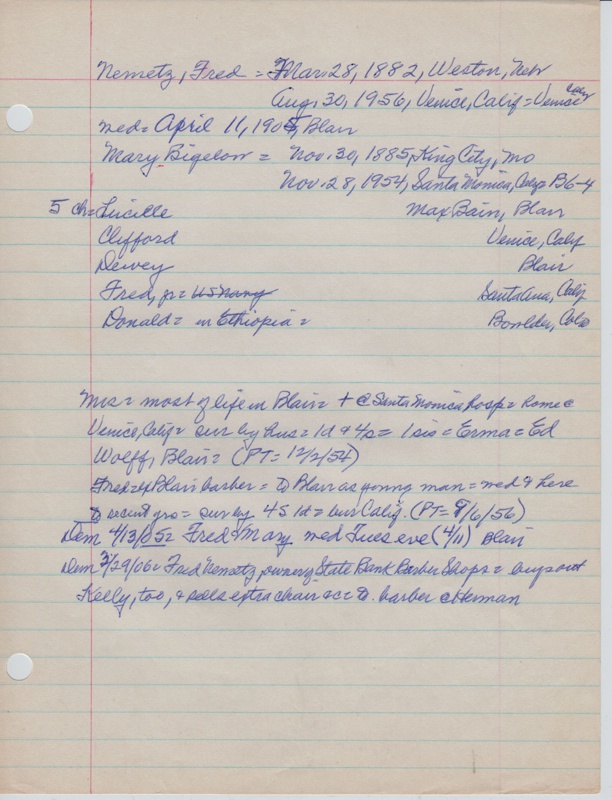 Nemetz, Fred = Mar. 28, 1882, Weston, Nebr
Aug. 30, 1956, Venice, Calif = Venice Calif
wed = April 11, 1905, Blair
Mary Bigelow = Nov. 30, 1885, King City, Mo
Nov. 28, 1954, Santa Monica, Calif = B6-4
5 ch = Lucille Max Bain, Blair
Clifford Venice, Calif
Dewey Blair
Fred, jr = US Navy Santa Ana, Calif
Donald = in Ethiopia = Boulder, Colo
Mrs = most of life in Blair = + @ Santa Monica hosp = Rome c
Venice, Calif = sur by hus = 1d & 4s = 1 sis = Erma = Ed
Wolff, Blair = (PT = 12/2/54)
Fred = ex Blair barber = to Blair as young man = wed & here
to recent yrs = sur by 4S 1d = bur Calif. (PT = 9/6/56)
Dem 4/13/05 = Fred = Mary wed Tues eve (4/11) Blair
Dem 3/29/06 = Fred Nemetz, owner State Bank Barber Shop = buys out
Kelly, too, & sells extra chair &c = barber Herman